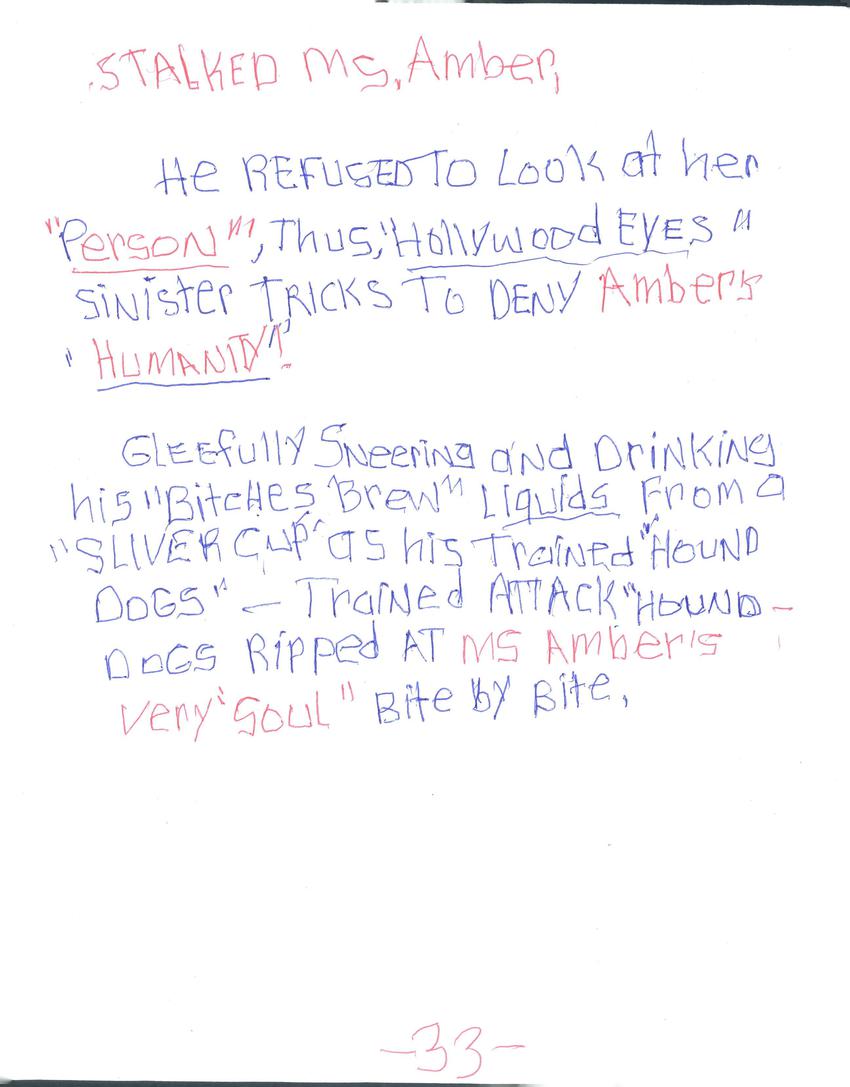 STALKED Ms, Amber,
He REFUSED TO Look at her
"Person"", Thus, "Hollywood EYES"
sinister TRICKS To DENY Ambers
"HUMANITY"!
GLEEfully Sneering and Drinking
his "BitcHes Brew" Liquids From a
"SLIVER CUP" as his Trained "HOUND
DOGS" — Trained ATTACK "HOUND-
DOGS Ripped AT MS Amber's
very "Soul" Bite by Bite,
-33-